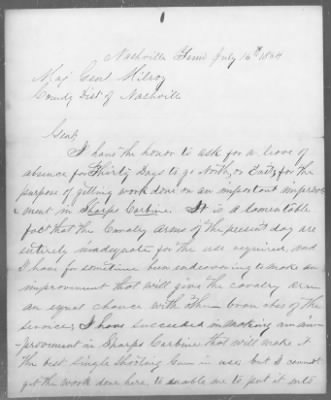 Nashville Tenn July 16th 1864
Maj Genl Milroy
Comdg Dist of Nashville
Genl,
I have the honor to ask for a leave of
absence for Thirty Days to go North, or East, for the
purpose of getting work done on an important improve
ment in Sharps Carbine. It is a lamentable
fact that the Cavalry arms of the present day are
entirely inadequate for the use required, and
I have for sometime been endeavoring to make an
improvement that will give the cavalry arm
an equal chance with other branches of the
service. I have succeeded in making an im
-provement in Sharps Carbine that will make it
the best single shooting Gun in use but I cannot
get the work done here to enable me to put it into